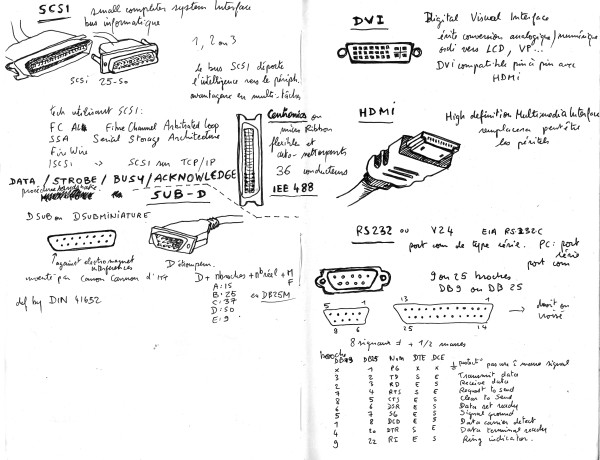 SCSI small computer system Interface
bus informatique
1, 2 ou 3
SCSI 25-50
le bus SCSI déporte
l'intelligence vers le périph.
avantageux en multi-tâches
Tech utilisant SCSI:
FC AL Fibre Channel Arbitrated Loop
SSA Serial Storage Architecture
Fire Wire
ISCSI -> SCSI sur TCP/IP
Centronics ou
micro Ribbon
flexible et
36 conducteurs
IEE 488
DATA / STROBE / BUSY / ACKNOWLEDGE
procédure
SUB-D
DSUB ou DSUBMINIATURE
against electromagnet
interferences
D trompeur.
inventé par Canon Cannon d'ITT
def by DIN 41652
D + nbroches + nbréel + M
F
A: 15
B: 25 ex DB25M
C: 37
D: 50
E: 9
DVI Digital Visual Interface
évite conversion analogique/numérique
ordi vers LCD, VP...
DVI compatible pin à pin avec
HDMI
HDMI High definition Multimedia Interface
remplacera peut être
les péritels
RS232 ou V24 EIA RS232C
port com de type série. PC: port
série
port com
9 ou 25 broches
DB9 ou DB25
5 1 13 1
9 6 25 14
droit ou
croisé
8 signaux + 1/2 masses
broche
DB9 DB25 Nom DTE DCE
x 1 PG x x protect° pas vrai masse signal
3 2 TD S E Transmit data
2 3 RD E S Receive data
7 4 RTS S E Request to send
8 5 CTS E S Clear to send
6 6 DSR E S Data set ready
5 7 SG E S Signal ground
1 8 DCD E S Data carrier detect
4 20 DTR S E Data terminal ready
9 22 RI E S Ring indicator.